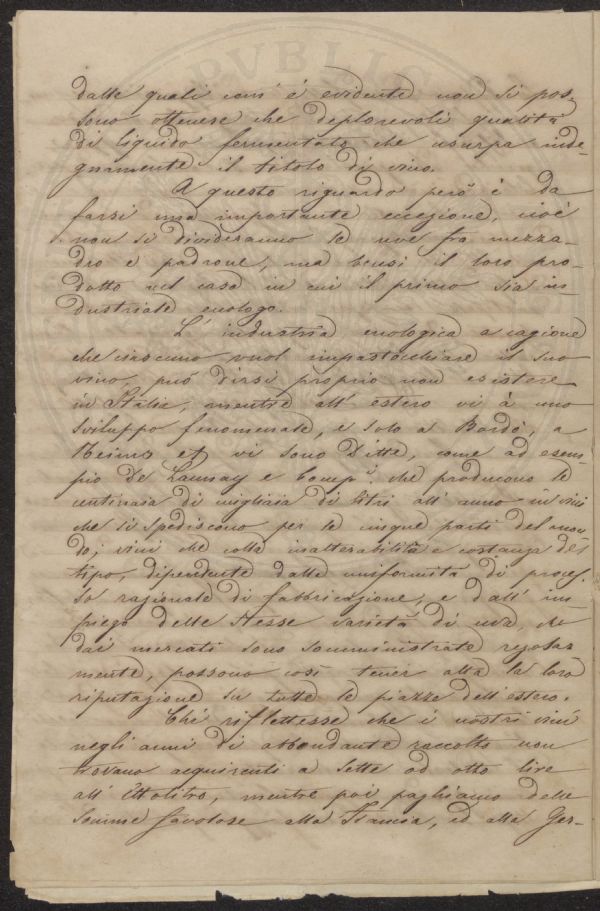 dalle quali com' è evidente non si pos-
sono ottenere che deplorevoli qualità
di liquido fermentato che usurpa inde-
gnamente il titolo di vino.
A questo riguardo però è da
farsi una importante eccezione, cioè
non si divideranno le uve fra mezza-
dro e padrone, ma bensì il loro pro-
dotto nel caso in cui il primo sia in-
dustriale enologo.
L' industria enologica a cagione
che ciascuno vuol impastocchiare il suo
vino, può dirsi proprio non esistere
in Italia, mentre all' estero vi à uno
sviluppo fenomenale, e solo a Bordò, a
Reims et vi sono Ditte, come ad esem-
pio De Launay e Comp.ⁱ che producono le
centinaia di migliaia di litri all' anno in vini
che si spediscono per le cinque parti del mon-
do; vini che colla inalterabilità e costanza del
tipo, dipendente dalla uniformità di proces-
so razionale di fabbricazione, e dall' im-
piego delle stesse varietà di uva, che
dai mercati sono somministrate regolar
mente, possono così tener alta la loro
riputazione su tutte le piazze dell' estero.
Chi riflettesse che i nostri vini
negli anni di abbondante raccolta non
trovano acquirenti a sette od otto lire
all' Ettolitro, mentre poi paghiamo delle
somme favolose alla Francia, ed alla Ger-
PVBLIC